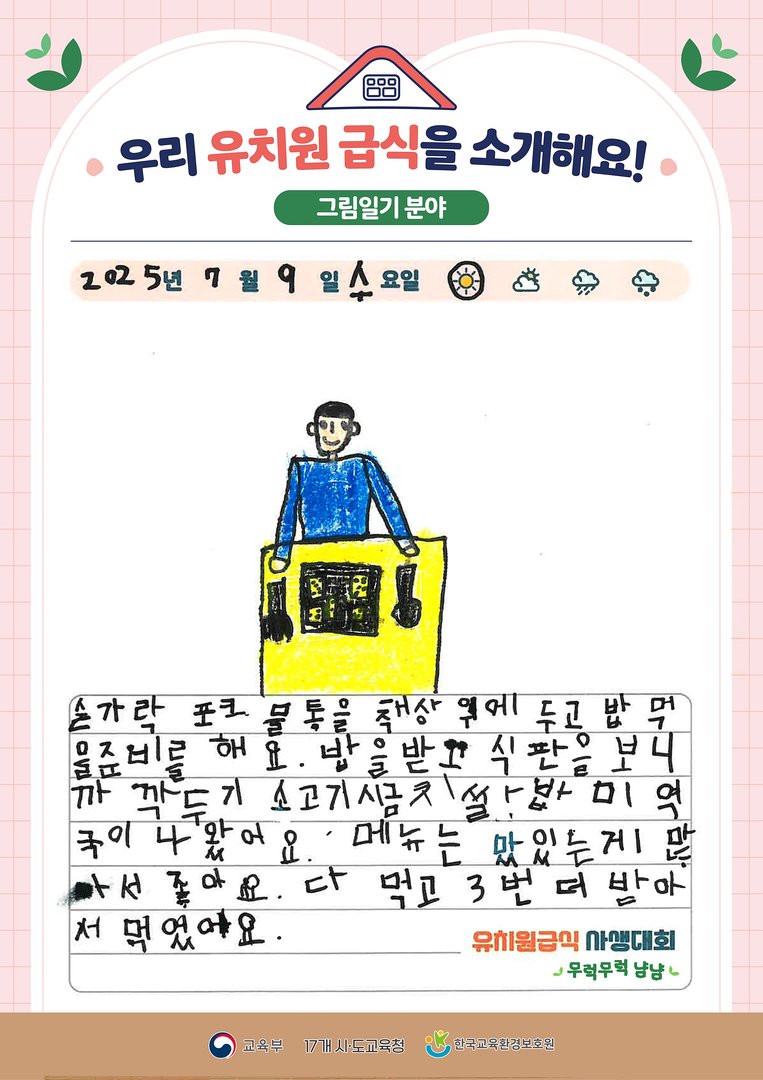 우리 유치원 급식을 소개해요!
그림일기 분야
2025년 7월 9일 수요일
숟가락 포크 물통을 책상 위에 두고 밥 먹
을준비를 해요. 밥을받고 식판을 보니
까 깍두기 소고기시금치 쌀밥 미역
국이 나왔어요. 메뉴는 맛있는게 많
아서 좋아요. 다 먹고 3번 더 받아
서 먹었어요.
유치원급식 사생대회
무럭무럭 냠냠
교육부 17개 시·도교육청 한국교육환경보호원